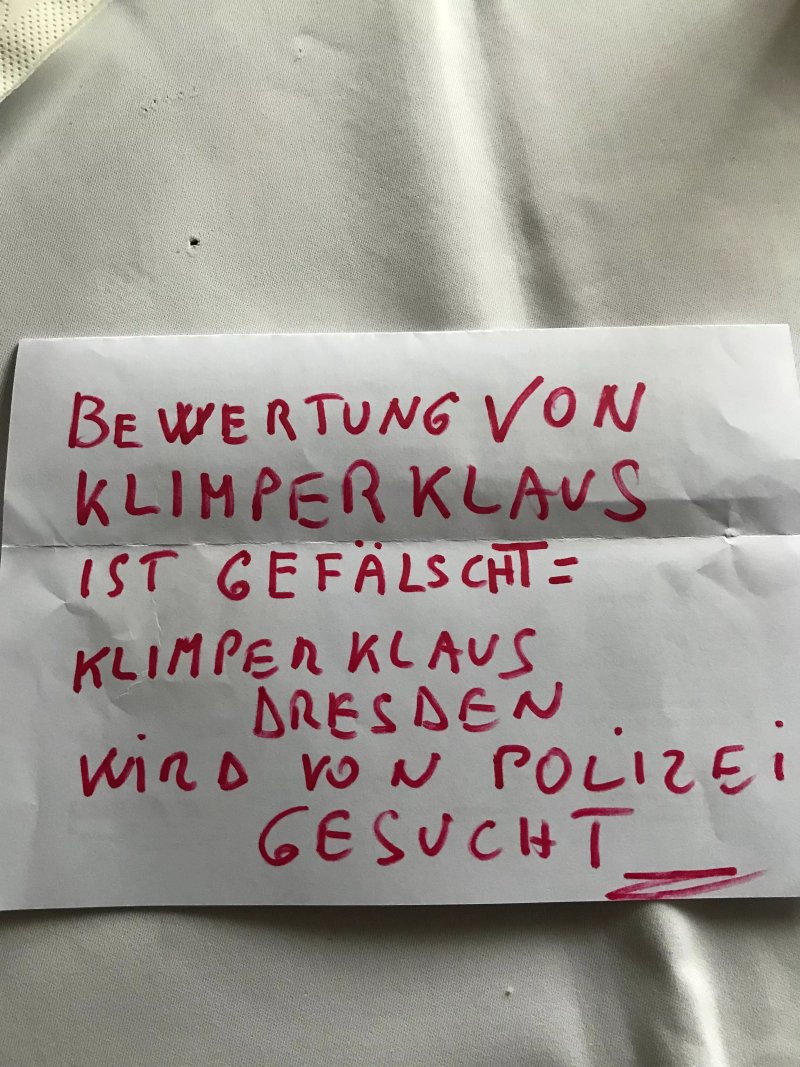 BEWERTUNG VON
KLIMPERKLAUS
IST GEFÄLSCHT=
KLIMPERKLAUS
DRESDEN
WIRD VON POLIZEI
GESUCHT